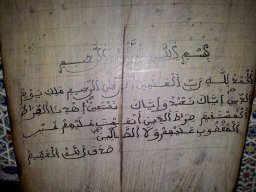 بسم الله الرحمن الرحيم
الحمد لله رب العلمين الرحمن الرحيم ملك يوم
الدين إياك نعبد وإياك نستعين اهدنا الصراط
المستقيم صراط الذين أنعمت عليهم غير
المغضوب عليهم ولا الضالين
صدق الله العظيم